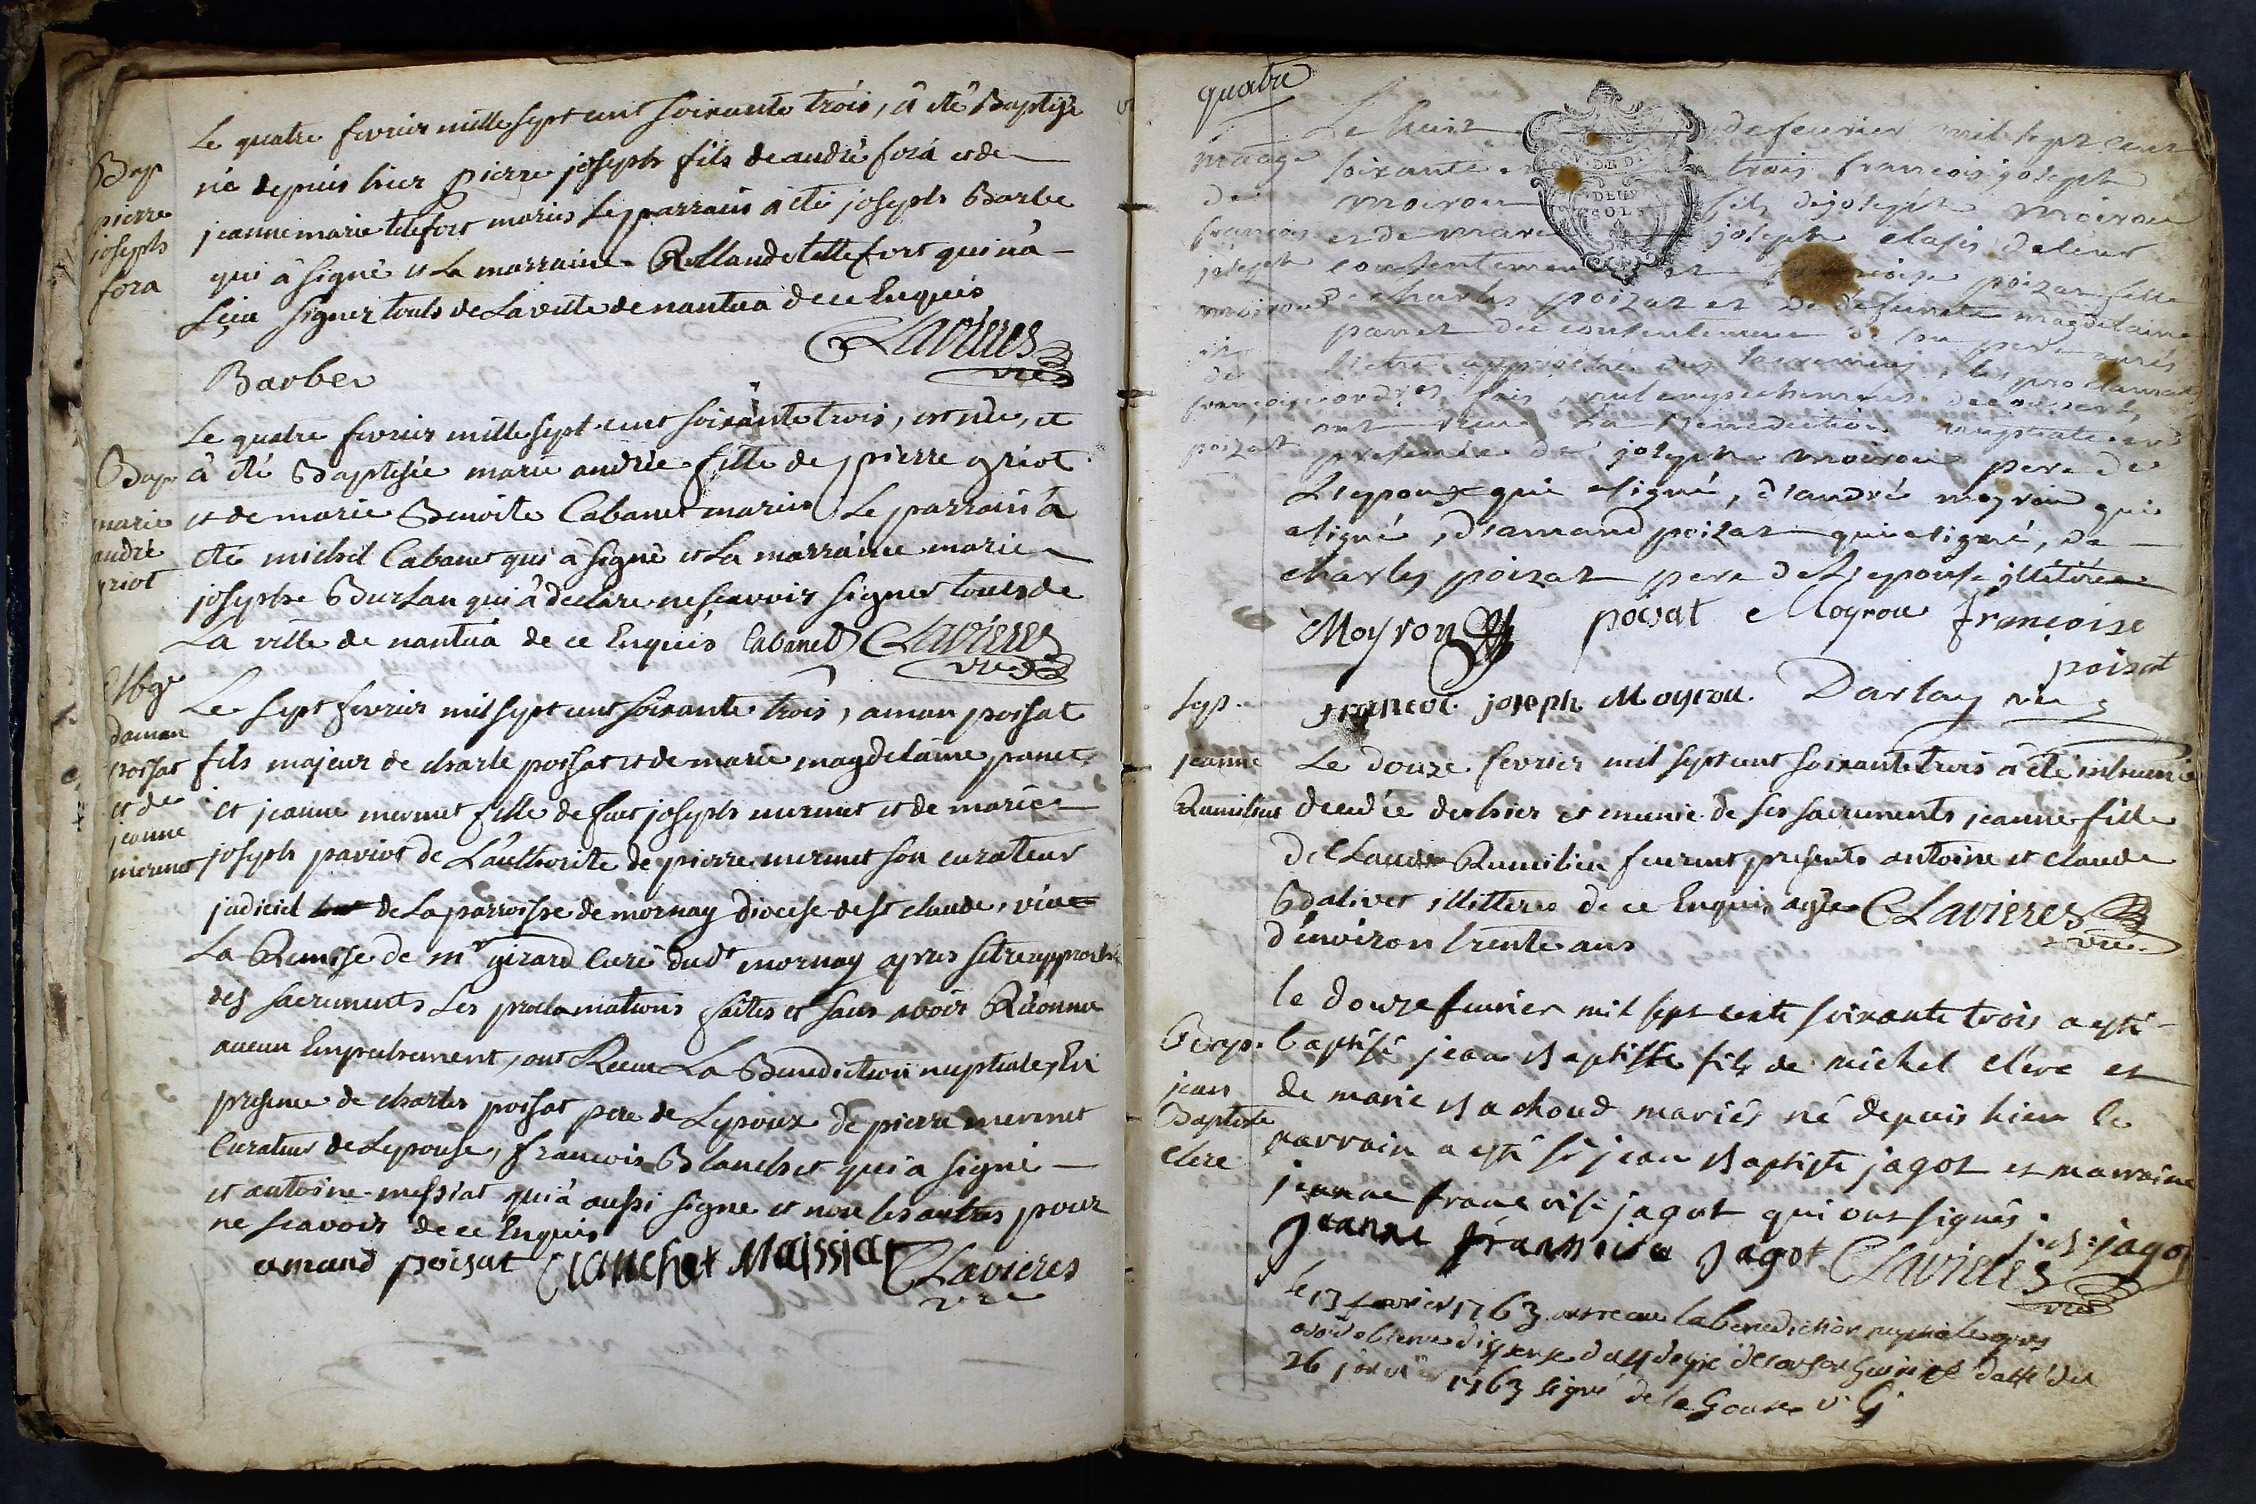 Le quatre fevrier mille sept cent soixante trois, â été Baptisé
né depuis hier pierre joseph fils de andré fora et de
jeanne marie tellefort mariés Le parrain a été joseph Barbe
qui â signé et La marraine Rollande tellefort qui n'â
sçeu signer touts de La ville de nantua de ce Enquis
CLavieres
vic
Barbe
Bap
pierre
joseph
fora
Le quatre fevrier mille sept cent soixante trois, est née, et
â été Baptisée marie andrée fille de pierre griot
et de marie Benoite Cabanet mariés Le parrain â
été michel Cabanet qui â signé et La marraine marie
josephe Burlan qui â declaré ne scavoir signer touts de
La ville de nantua de ce Enquis Cabanet CLavieres
vic
Bap
marie
andré
griot
Le sept fevrier mil sept cent soixante trois, aman poisat
fils majeur de charle poisat et de marie magdelaine panet
et jeanne mermet fille de feut joseph mermet et de marie
joseph pariot de L'authorité de pierre mermet son curateur
judiciel de La parroisse de mornay diocese de st claude, vüe
La Remise de mr girard Curé dudt mornay apres s'etre approché
des sacrements Les proclamations faittes et sans avoir Réconnu
aucun Empechement, ont Recue La Benediction nuptiale, En
presence de charles poisat pere de Lepoux de pierre mermet
Curateur de Lepouse, francois Blanchet qui a signé
et antoine messiat qui â aussi signé et non les autres pour
ne scavoir de ce Enquis
amand poisat Blanchet Maissiat CLavieres
vic
Mge
daman
poisat
et de
jeanne
mermet
quatre
Le huit de feurier mil sept cent
soixante trois francois joseph
moirou fils de joseph moirou
et de marie joseph clafis de leur
consentement et francoise poizat fille
de charles poizat et de defunte magdelaine
panet du consentement de son pere aprés
s'etre approché des sacremens, les proclamat
fois, nul empechement decouvert,
ont recu La Benediction nuptiale en
presence de joseph moirou pere de
L'epoux qui a signé, d'andré moyrou qui
a signé, d'amand poizat qui a signé, de
charles poizat pere de L'epouse illitéré
Moyrou poisat Moyrou françoise
poisat
francoi joseph Moyrou. Darlay vic
mariage
de
françois
joseph
moirou
de
françoise
poizat
Le douze fevrier mil sept cent soixante trois a été inhumée
decedée d'hier et munie de ses sacrements jeanne fille
de Claude Rumilieu feurent presents antoine et claude
Balivet illitterés de ce Enquis agée CLavieres
d'environ trente ans vic.
Sep.
jeanne
Rumilieu
le douze feurier mil sept cents soixante trois a esté
baptisé jean Baptiste fils de michel clere et
de marie Bachoud mariés né depuis hier le
parrain a esté sr jean Baptiste jagot et marraine
jeanne francoise jagot qui ont signés. j. B. jagot
jeanne fransoise jagot CLavieres
vic
Bap.
jean
Baptiste
clere
le 13 fevrier 1763 ont recu la benediction nuptiale apres
avoir obtenu dispense du 4 degre de consanguinité datté du
26 janvier 1763 signé de la v. G